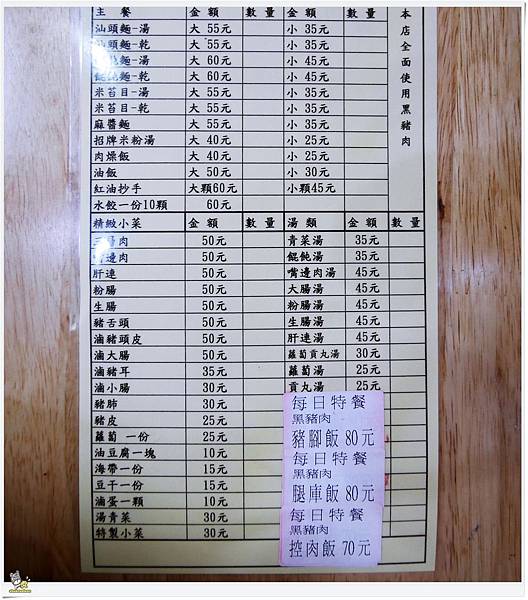 主 餐 金 額 數 量 金 額 數 量
汕頭麵-湯 大 55元 小 35元
汕頭麵-乾 大 55元 小 35元
麵-湯 大 60元 小 45元
麵-乾 大 60元 小 45元
米苔目-湯 大 55元 小 35元
米苔目-乾 大 55元 小 35元
麻醬麵 大 55元 小 35元
招牌米粉湯 大 40元 小 25元
肉燥飯 大 40元 小 25元
油飯 大 50元 小 30元
紅油抄手 大顆60元 小顆45元
水餃一份10顆 60元
本店全面使用黑豬肉
精緻小菜 金 額 數 量 湯 類 金 額 數 量
肉 50元 青菜湯 35元
邊肉 50元 餛飩湯 35元
肝連 50元 嘴邊肉湯 45元
粉腸 50元 大腸湯 45元
生腸 50元 粉腸湯 45元
豬舌頭 50元 生腸湯 45元
滷豬頭皮 50元 肝連湯 45元
滷大腸 50元 蘿蔔貢丸湯 30元
滷豬耳 35元 蘿蔔湯 25元
滷小腸 30元 貢丸湯 25元
豬肺 30元
豬皮 25元
蘿蔔 一份 25元
油豆腐一塊 10元
海帶一份 15元
豆干一份 15元
滷蛋一顆 10元
湯青菜 30元
特製小菜 30元
每日特餐
黑豬肉
豬腳飯 80元
每日特餐
黑豬肉
腿庫飯 80元
每日特餐
黑豬肉
控肉飯 70元